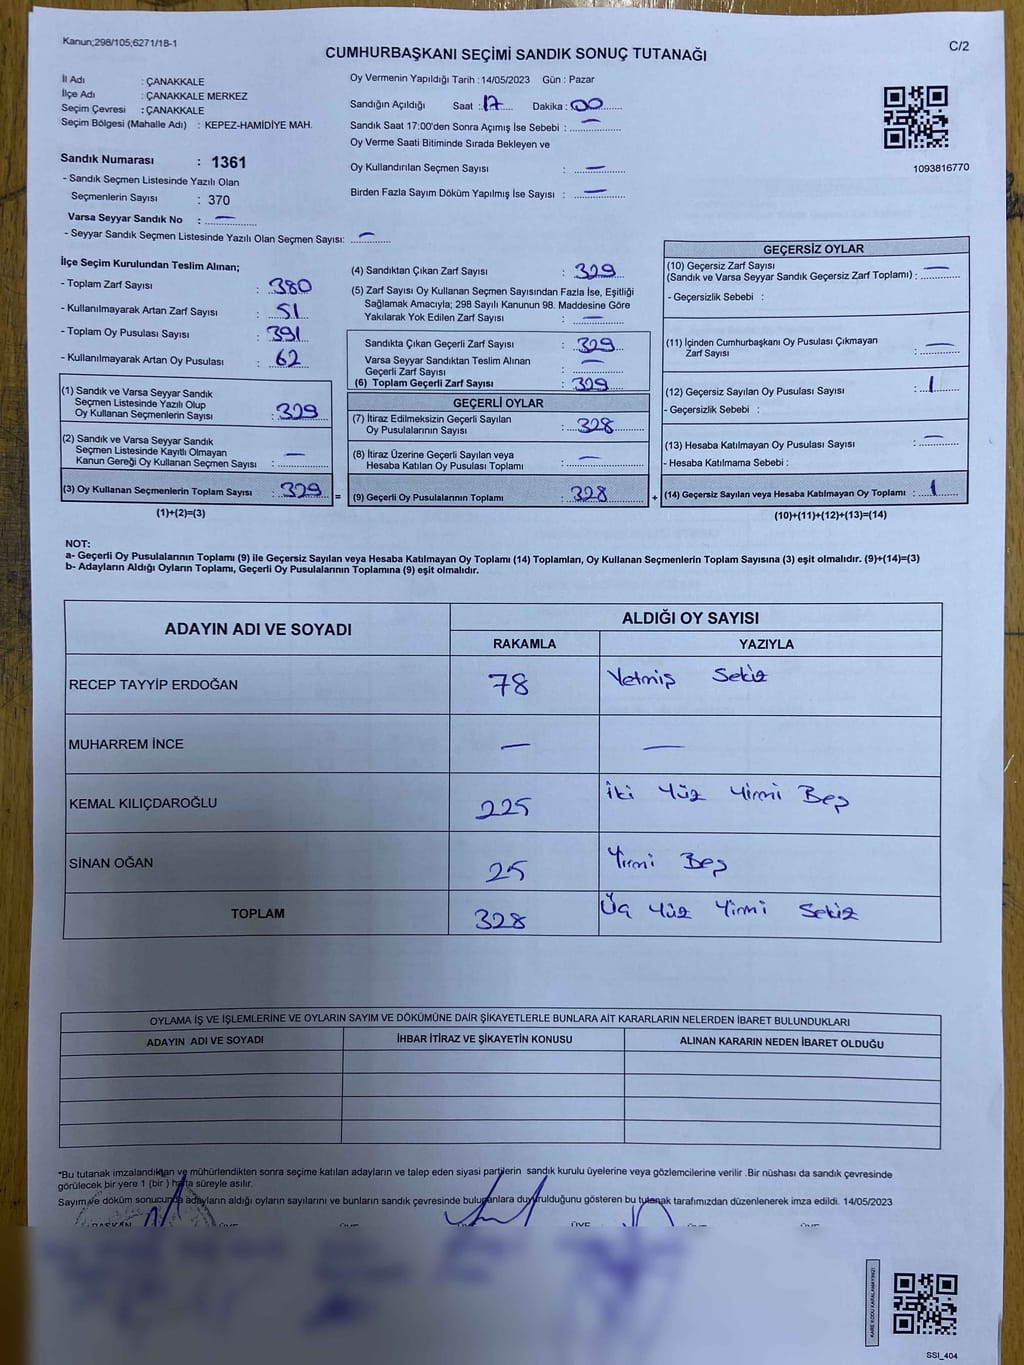 Kanun;298/105;6271/18-1
C/2
CUMHURBAŞKANI SEÇİMİ SANDIK SONUÇ TUTANAĞI
İl Adı : ÇANAKKALE
İlçe Adı : ÇANAKKALE MERKEZ
Seçim Çevresi : ÇANAKKALE
Seçim Bölgesi (Mahalle Adı) : KEPEZ-HAMİDİYE MAH.
Sandık Numarası : 1361
- Sandık Seçmen Listesinde Yazılı Olan
Seçmenlerin Sayısı : 370
Varsa Seyyar Sandık No : —
- Seyyar Sandık Seçmen Listesinde Yazılı Olan Seçmen Sayısı: —
Oy Vermenin Yapıldığı Tarih : 14/05/2023 Gün : Pazar
Sandığın Açıldığı Saat : 17 Dakika : 00
Sandık Saat 17:00'den Sonra Açımış İse Sebebi : —
Oy Verme Saati Bitiminde Sırada Bekleyen ve
Oy Kullandırılan Seçmen Sayısı : —
Birden Fazla Sayım Döküm Yapılmış İse Sayısı : —
1093816770
İlçe Seçim Kurulundan Teslim Alınan;
- Toplam Zarf Sayısı : 380
- Kullanılmayarak Artan Zarf Sayısı : 51
- Toplam Oy Pusulası Sayısı : 391
- Kullanılmayarak Artan Oy Pusulası : 62
(1) Sandık ve Varsa Seyyar Sandık
Seçmen Listesinde Yazılı Olup
Oy Kullanan Seçmenlerin Sayısı : 329
(2) Sandık ve Varsa Seyyar Sandık
Seçmen Listesinde Kayıtlı Olmayan
Kanun Gereği Oy Kullanan Seçmen Sayısı : —
(3) Oy Kullanan Seçmenlerin Toplam Sayısı : 329 =
(1)+(2)=(3)
(4) Sandıktan Çıkan Zarf Sayısı : 329
(5) Zarf Sayısı Oy Kullanan Seçmen Sayısından Fazla İse, Eşitliği
Sağlamak Amacıyla; 298 Sayılı Kanunun 98. Maddesine Göre
Yakılarak Yok Edilen Zarf Sayısı : —
Sandıkta Çıkan Geçerli Zarf Sayısı : 329
Varsa Seyyar Sandıktan Teslim Alınan
Geçerli Zarf Sayısı : —
(6) Toplam Geçerli Zarf Sayısı : 329
GEÇERLİ OYLAR
(7) İtiraz Edilmeksizin Geçerli Sayılan
Oy Pusulalarının Sayısı : 328
(8) İtiraz Üzerine Geçerli Sayılan veya
Hesaba Katılan Oy Pusulası Toplamı : —
(9) Geçerli Oy Pusulalarının Toplamı : 328 +
GEÇERSİZ OYLAR
(10) Geçersiz Zarf Sayısı
(Sandık ve Varsa Seyyar Sandık Geçersiz Zarf Toplamı) : —
- Geçersizlik Sebebi :
(11) İçinden Cumhurbaşkanı Oy Pusulası Çıkmayan
Zarf Sayısı : —
(12) Geçersiz Sayılan Oy Pusulası Sayısı : 1
- Geçersizlik Sebebi :
(13) Hesaba Katılmayan Oy Pusulası Sayısı : —
- Hesaba Katılmama Sebebi :
(14) Geçersiz Sayılan veya Hesaba Katılmayan Oy Toplamı : 1
(10)+(11)+(12)+(13)=(14)
NOT:
a- Geçerli Oy Pusulalarının Toplamı (9) ile Geçersiz Sayılan veya Hesaba Katılmayan Oy Toplamı (14) Toplamları, Oy Kullanan Seçmenlerin Toplam Sayısına (3) eşit olmalıdır. (9)+(14)=(3)
b- Adayların Aldığı Oyların Toplamı, Geçerli Oy Pusulalarının Toplamına (9) eşit olmalıdır.
ADAYIN ADI VE SOYADI ALDIĞI OY SAYISI
RAKAMLA YAZIYLA
RECEP TAYYİP ERDOĞAN 78 Yetmiş Sekiz
MUHARREM İNCE — —
KEMAL KILIÇDAROĞLU 225 İki Yüz Yirmi Beş
SİNAN OĞAN 25 Yirmi Beş
TOPLAM 328 Üç Yüz Yirmi Sekiz
OYLAMA İŞ VE İŞLEMLERİNE VE OYLARIN SAYIM VE DÖKÜMÜNE DAİR ŞİKAYETLERLE BUNLARA AİT KARARLARIN NELERDEN İBARET BULUNDUKLARI
ADAYIN ADI VE SOYADI İHBAR İTİRAZ VE ŞİKAYETİN KONUSU ALINAN KARARIN NEDEN İBARET OLDUĞU
*Bu tutanak imzalandıktan ve mühürlendikten sonra seçime katılan adayların ve talep eden siyasi partilerin sandık kurulu üyelerine veya gözlemcilerine verilir .Bir nüshası da sandık çevresinde
görülecek bir yere 1 (bir ) hafta süreyle asılır.
Sayım ve döküm sonucunda adayların aldığı oyların sayılarını ve bunların sandık çevresinde bulunanlara duyurulduğunu gösteren bu tutanak tarafımızdan düzenlenerek imza edildi. 14/05/2023
BAŞKAN ÜYE ÜYE ÜYE ÜYE ÜYE
KARE KODU KARALAMAYINIZ!
SSI_404